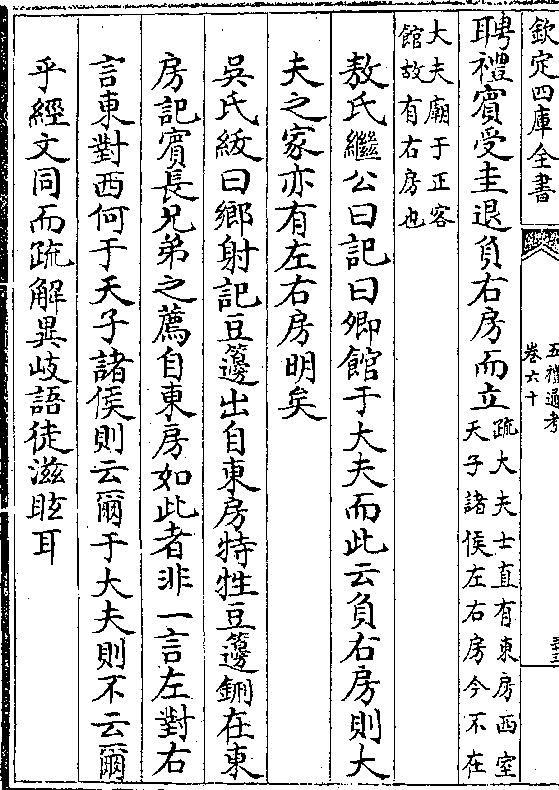 欽定四庫全書
五禮通考
卷六十
聘禮賓受圭退負右房而立疏大夫士直有東房西室
天子諸侯左右房今不在
大夫廟于正客
館故有右房也
敖氏繼公曰記曰卿館于大夫而此云負右房則大
夫之家亦有左右房明矣
吳氏紱曰鄉射記豆籩出自東房特牲豆籩鉶在東
房記賓長兄弟之薦自東房如此者非一言左對右
言東對西何于天子諸侯則云爾于大夫則不云爾
乎經文同而疏解異岐語徒滋眩耳